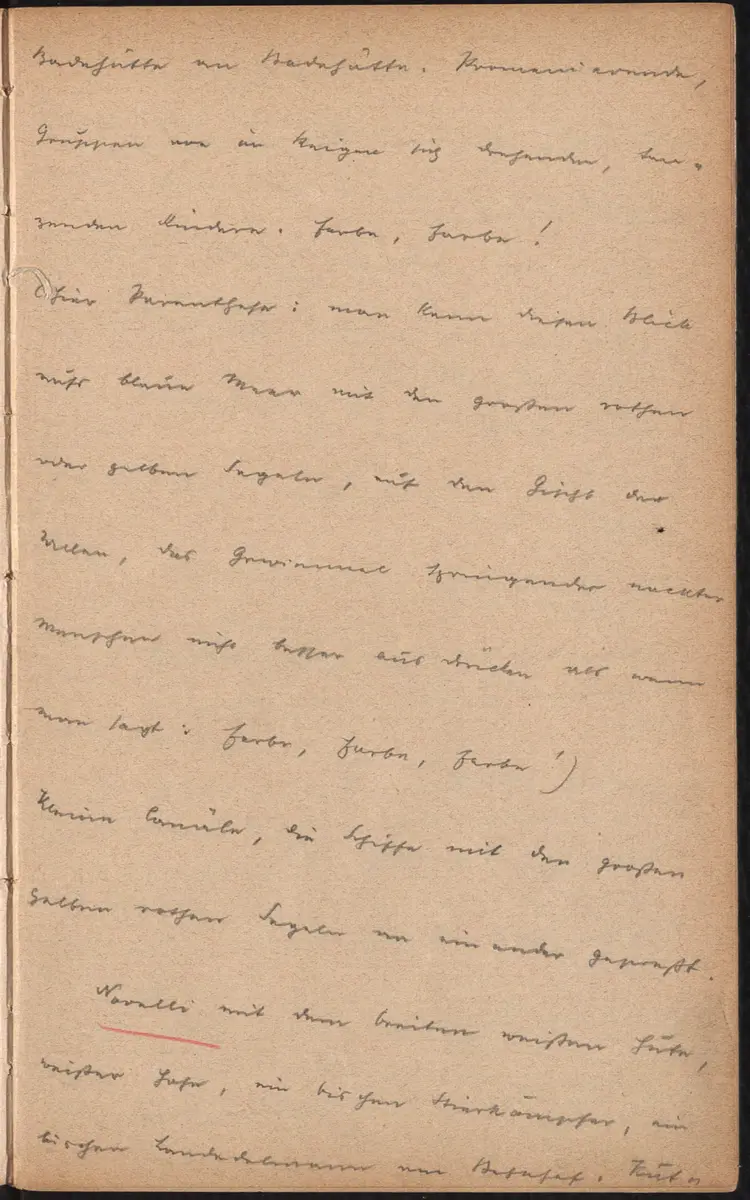 Badehütte an Badehütte. Promenierende,
Gruppen von im Reigen sich drehenden, tan-
zenden Kindern. Farbe, Farbe!
(Hier Parenthese: man kann diesen Blick
aufs blaue Meer mit den großen rothen
oder gelben Segeln, auf den Gischt der
Wellen, das Gewimmel springender nackter
Menschen nicht besser aus drücken als wenn
man sagt: Farbe, Farbe, Farbe!)
Kleine Canäle, die Schiffe mit den großen
gelben rothen Segeln an ein ander gepreßt.
Novelli mit dem breiten weißen Hute,
weißer Hose, ein bischen Stierkämpfer, ein
bischen Landedelmann am Bahnhof.